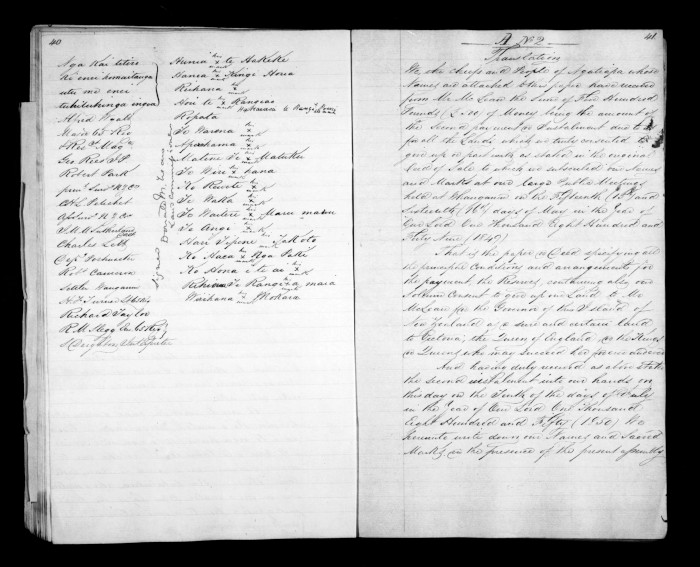 40
Nga Kai titiro
ki enei homaitanga
utu me enei
tuhituhinga ingoa
Major 65 Reg
Geo Rees J P
Robert Park
Charles Letts
Capt Forchester
Robt Cameron
Settler Wanganui
Richard Taylor
Hunia his x mark te Hakeke
Hanea his x mark Kingi Horia
Reihana x mark
Hori te his x mark Rangiao
Ropata
Te Narena his x mark
Aperahama his x mark
Matene Te his x mark Matuku
Te Wire his x mark hana
Ko Rewete his x mark
Te Watta his x mark
Te Wateri his x mark Maru maru
Te Ango his x mark
Hori Tipene his x mark Takoto
Ko Haea his x mark Nga Taki
Ko Hona his x mark i te ao
Rihimona Te Rangi his x mark a maia
Warihana his x mark Mokara
41
A No 2
Translation
We the Chiefs and People of Ngatiapa whose
Names are attached to this paper have received
from Mr McLean the Sum of Five Hundred
Pounds (£500) of Money being the amount of
the Second payment or Instalment due to us
for all the Lands which we truly consented to
give up or part with as stated in the original
Deed of Sale to which we subscribed our Names
and Marks at our large Public Meetings
held at Whanganui on the Fifteenth (15th) and
Sixteenth (16th) days of May in the Year of
Our Lord One Thousand Eight Hundred and
Forty Nine (1849)
That is the paper or Deed specifying all
the principle Conditions and arrangements for
the payment the Reserves, containing also our
Positive Consent to give up our Land to Mr
McLean for the Governor of this Island of
New Zealand as a sure and certain land
to Victoria, the Queen of England or the Kings
or Queens who may succeed her for ever and ever
And having duly received as above stated
the second instalment into our hands on
this day on the Tenth of the days of July
in the Year of Our Lord One Thousand
Eight Hundred and Fifty (1850) We
hereunto write down our Names and Sacred
Marks in the presence of the present assembly